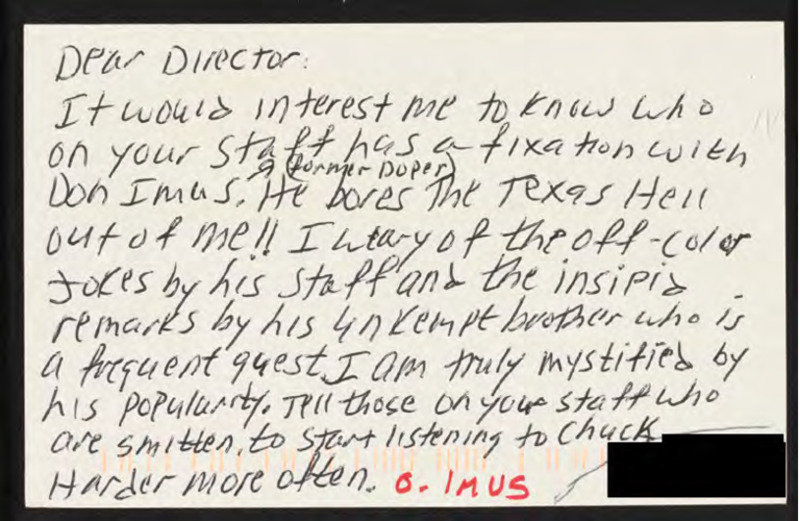 Dear Director:
It would interest me to know who
on your staff has a fixation with
a (former Doper)
Don Imus. He bores The Texas Hell
out of me!! I weary of the off-color
Jokes by his staff and the insipid
remarks by his unkempt brother who is
a frequent guest. I am truly mystified by
his popularity. Tell those on your staff who
are smitten, to start listening to Chuck
Harder more often. O. IMUS